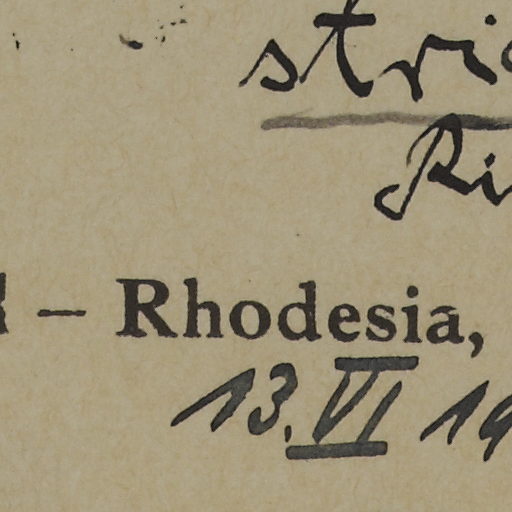 stri
Ri
– Rhodesia,
13.VI 19